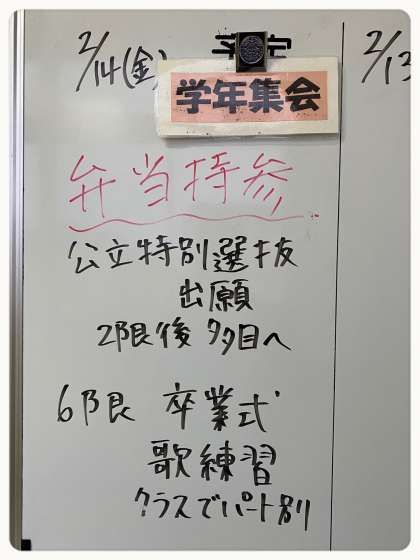 2/14(金) 予定
2/13
学年集会
弁当持参
公立特別選抜
出願
2限後 多目へ
6限 卒業式
歌練習
クラスでパート別